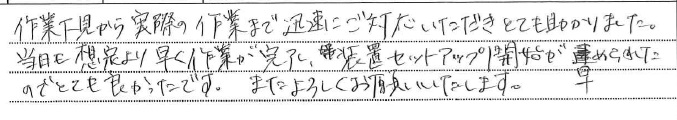 作業下見から実際の作業まで迅速にご対応いただきとても助かりました。
当日も想定より早く作業が完了し、装置セットアップ開始が早められた
のでとても良かったです。 またよろしくお願いいたします。